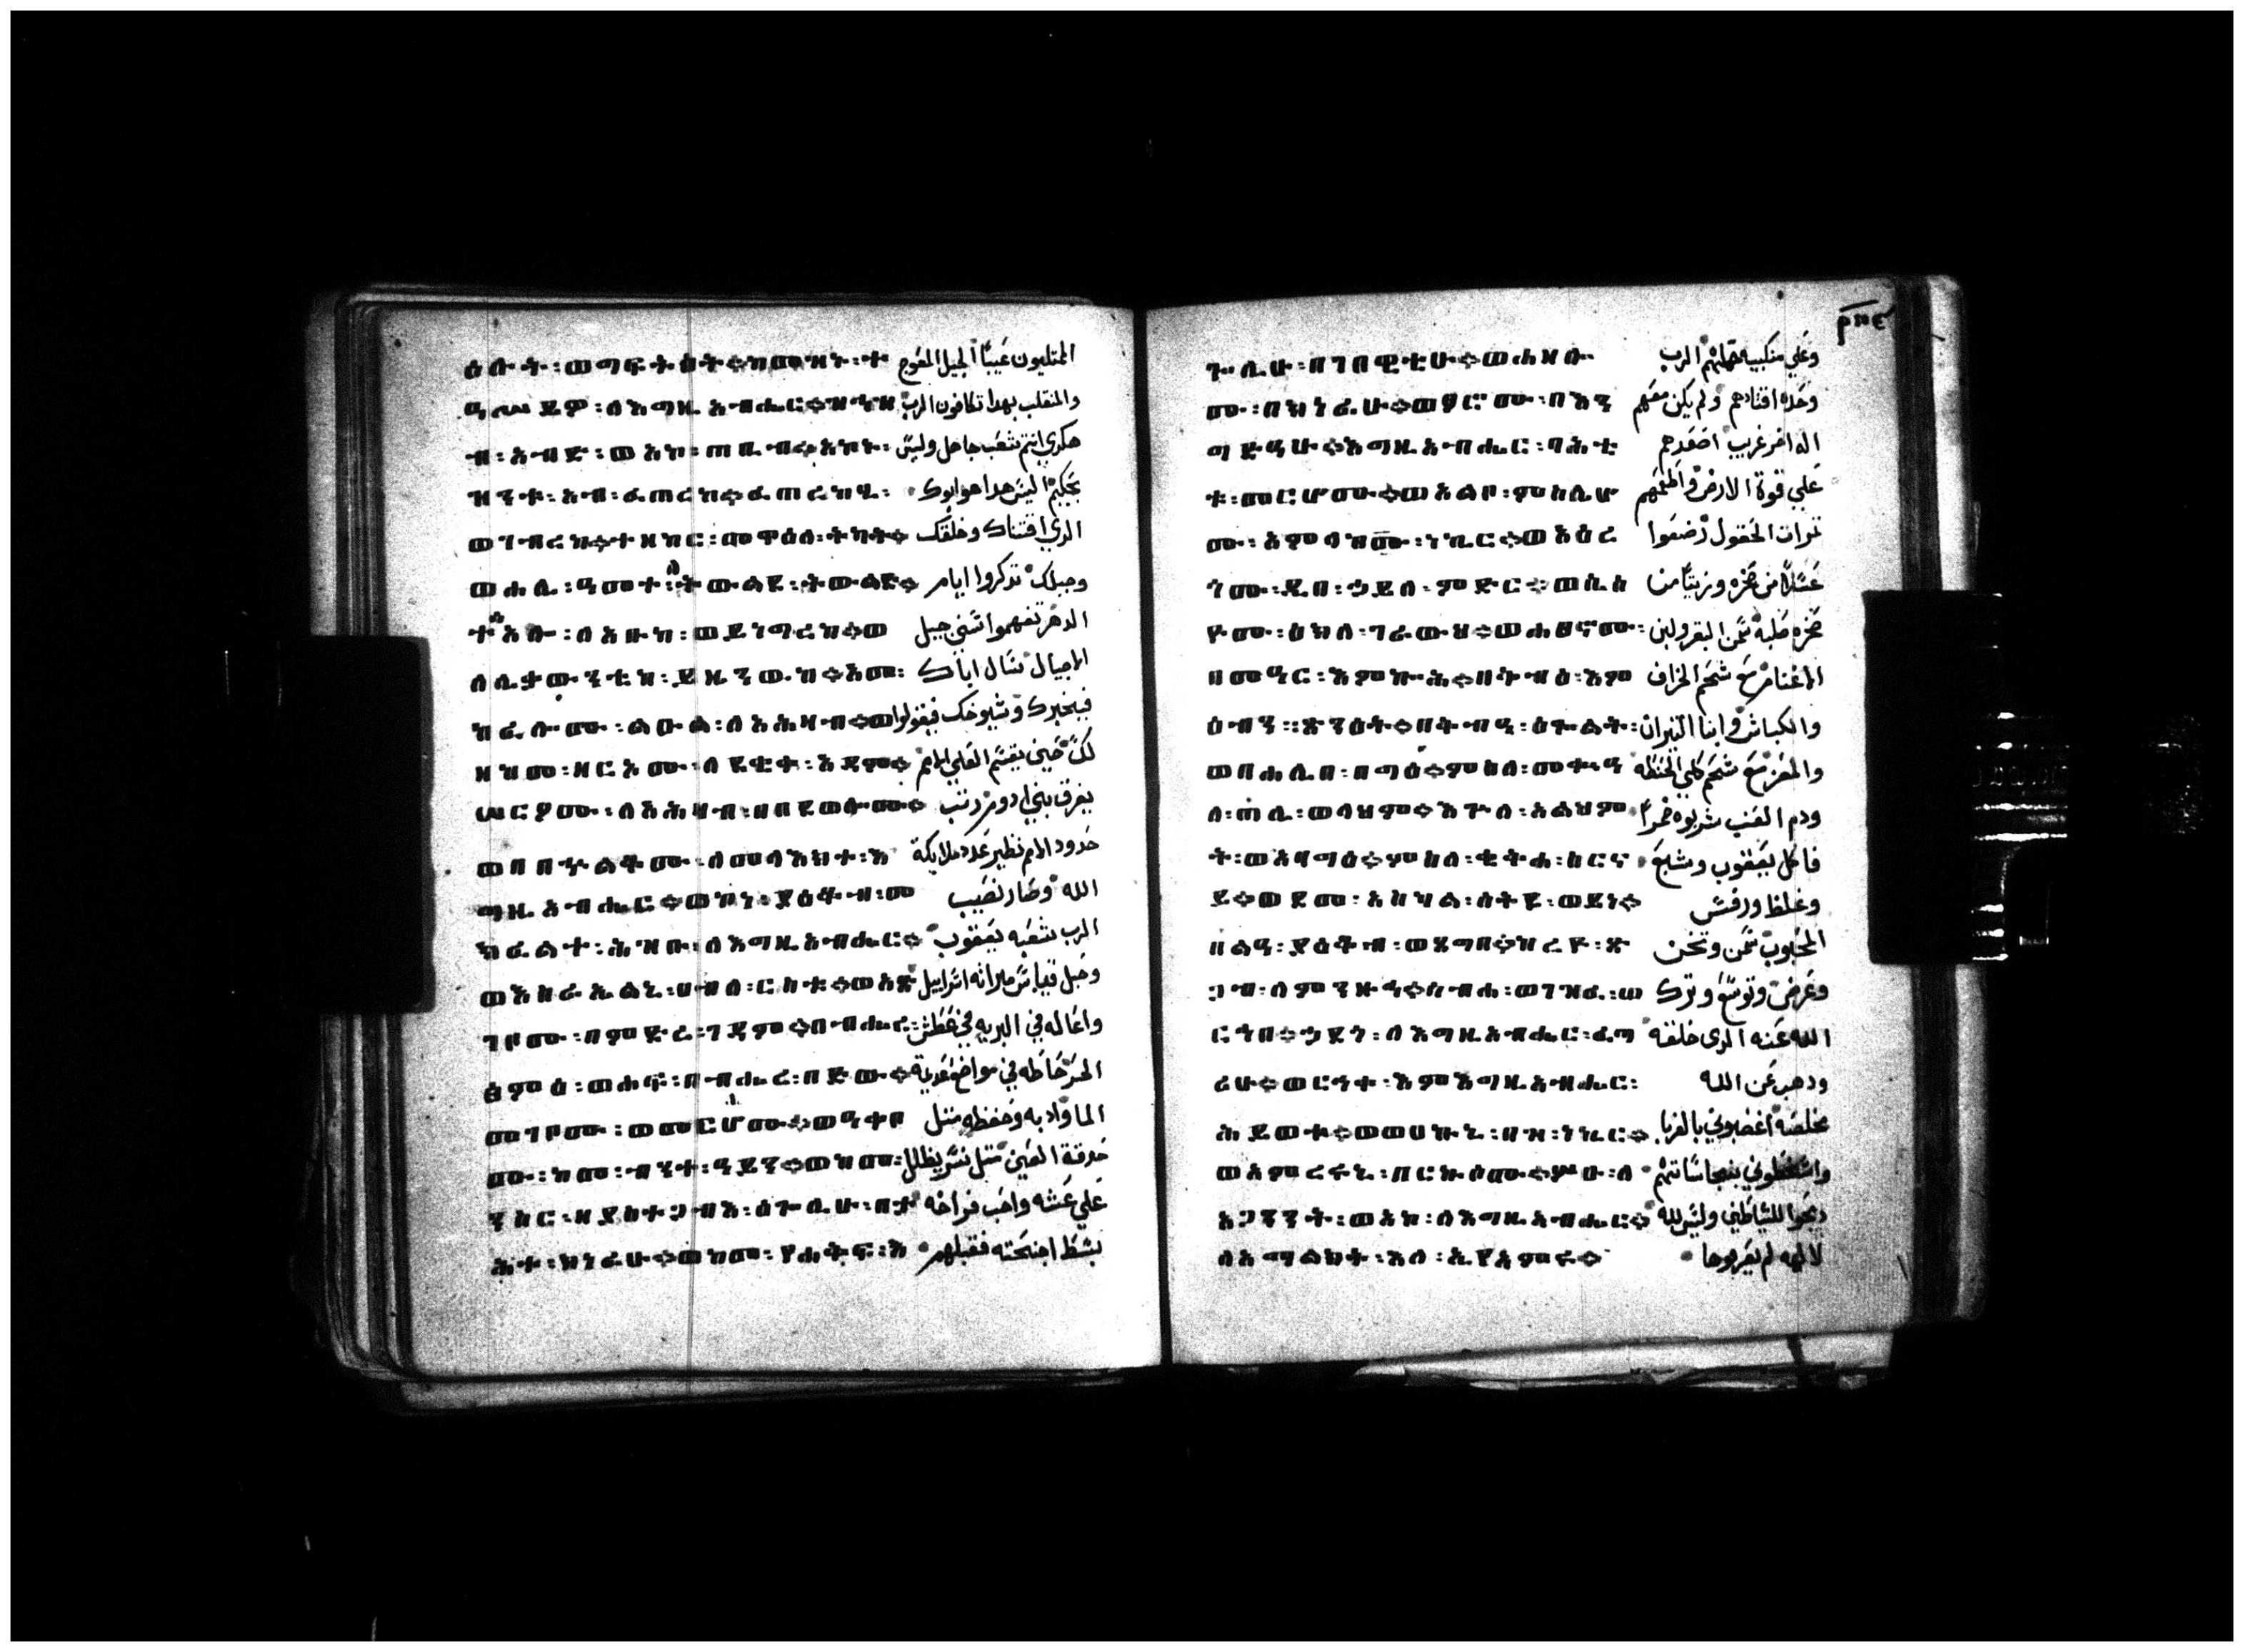 ዕሉት፡ወግፍትዕት።ከመዝኑ፡ተ المتليون عيبًا الجيل المعوج
ዓሥይዎ፡ለእግዚአብሔር። والمتقلب بهدا تكافون الرب
ብ፡አብድ፡ወአኮ፡ጠቢብ።አኮኑ፡ هكدي انتم شعب جاهل وليس
ዝንቱ፡አብ፡ፈጠረከ።ፈጠረከሂ፡ بحكيم اليس هدا هو ابوك
ወገብረከ።ተዘከር፡መዋዕለ፡ትካት። الدي اقتناك وخلقك
ወሐሊ፡ዓመተ፡ትውልደ፡ትውልድ። وجبلك تدكروا ايام
ተሰአሎ፡ለአቡከ፡ወይነግረከ።ወ الدهر تفهموا سني جيل
ለሊቃውንቲከ፡ይዜንውከ።አመ፡ الاجيال تسال اباك
ከፈሎሙ፡ልዑል፡ለአሕዛብ።ወ فيخبرك وشيوخك فيقولوا
ዘከመ፡ዘርአሙ፡ለደቂቀ፡አዳም። لك حين يقسم العلي الامم
ሠርዖሙ፡ለአሕዛብ፡በበደወሎሙ። يفرق بني ادم رتب
ወበበኍልቆሙ፡ለመላእክተ፡እ حدود الامم نظير عدد ملايكة
ግዚአብሔር።ወኮነ፡ያዕቆብ፡መ الله وصار نصيب
ክፈልተ፡ሕዝቡ፡ለእግዚአብሔር። الرب شعبه يعقوب
ወእስራኤልኒ፡ሀብለ፡ርስቱ።ወአጽ وحبل قياس ميراثه اسراييل
ገቦሙ፡በምድረ፡ገዳም።በብሔረ፡ واعاله في البريه في عطش
ፅምዕ፡ወሐፍ፡በብሔረ፡በድው። الحر حاطه في مواضع عديمة
መገቦሙ፡ወመርሆሙ።ወዓቀቦ الما وادبه وحفظه متل
ሙ፡ከመ፡ብንተ፡ዓይን።ወከመ፡ حدقة العين متل نسر يظلل
ንስር፡ዘያስተጋብእ፡ዕጐሊሁ፡በታ علي عشه واحب فراخه
ሕተ፡ክነፊሁ።ወከመ፡የሐቅፍ፡እ بسط اجنحته فقبلهم
ጐሊሁ፡በገበዋቲሁ።ወሐዘሎ وعلي منكبيه حملهم الرب
ሙ፡በክነፊሁ።ወፆሮሙ፡በእን وحده اقتادهم ولم يكن معهم
ግድዓሁ።እግዚአብሔር፡ባሕቲ اله اخر غريب اصعدهم
ቱ፡መርሆሙ።ወአልቦ፡ምስሌሆ علي قوة الارض واطعمهم
ሙ፡አምላከሙ፡ነኪር።ወአዕረ تمرات الحقول رضعوا
ጎሙ፡ዲበ፡ኃይለ፡ምድር።ወሴሰ عسلًا من صخره وزيتًا من
ዮሙ፡ዕክለ፡ገራውህ።ወሐፀኖሙ፡ صخره صلبه سمن البقر ولبن
በመዓር፡እምኰኵሕ።በቅብዕ፡እም الاغنام مع شحم الخراف
ዕብን፡፡ጽንዕት።በቅብዓ፡ዕጐልት፡ والكباش وابنا التيران
ወበሐሊበ፡በግዕ።ምስለ፡ والمعز مع شحم كلي الحنطه
ጣሊ፡ወላህም።እጐለ፡አልህም ودم العنب شربوه خمرًا
ት፡ወአባግዕ።ምስለ፡ቄቅሐ፡ስርና فاكل يعقوب وشبع
ይ።ወደመ፡አስካል፡ሰተየ፡ወይነ። وغلظ ورفس
በልዓ፡ያዕቆብ፡ወጸግበ። المحبوب سمن وتخن
ስብሐ፡ወገዝፈ፡ወ وعرض وتوسع وترك
ርኅበ።ኃደጎ፡ለእግዚአብሔር፡ፈጣ الله عنه الدي خلقه
ሪሁ።ወርኅቀ፡እምእግዚአብሔር፡ ودهب عن الله
ሕይወቱ።ወወሀኩኒ፡በዘ፡ነኪር። مخلصه اغضبوني بالغربا
ወአምረሩኒ፡በርኵሶሙ።ሦዑ፡ለ واسخطوني بنجاساتهم
አጋንንት፡ወአኮ፡ለእግዚአብሔር። دبحوا للشياطين وليس لله
ለአማልክት፡እለ፡ኢየአምሩ። لالهه لم يعرفوها